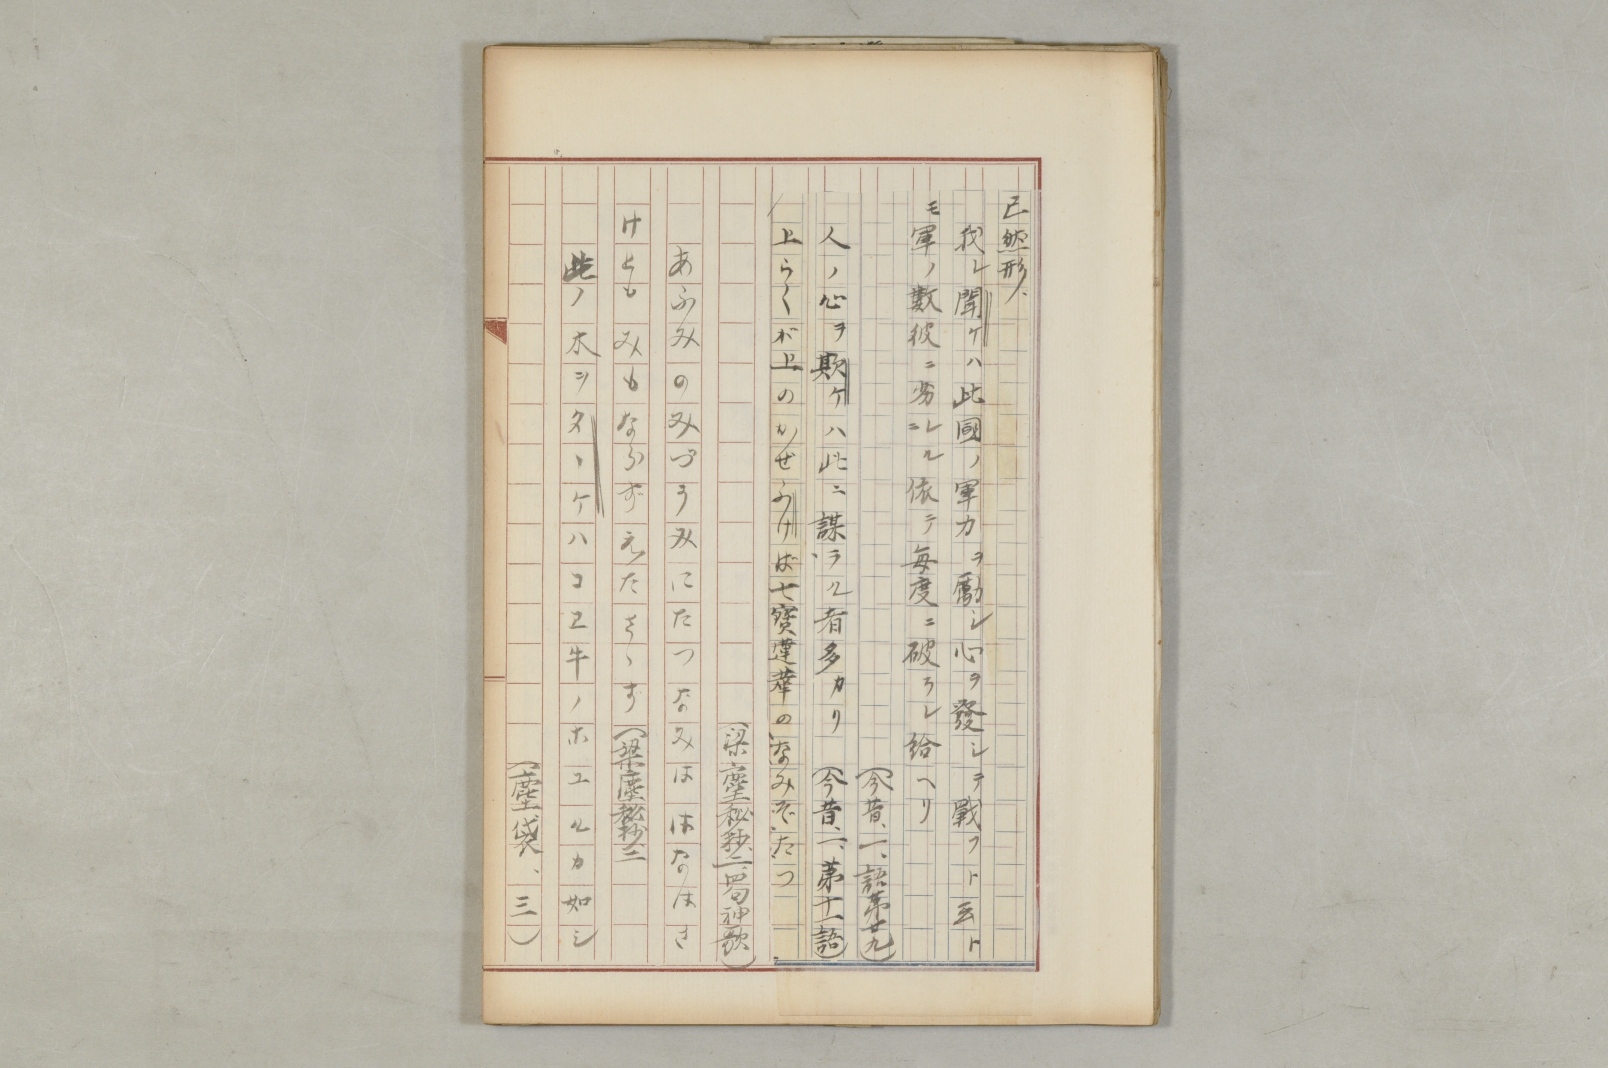 已然形、
我レ聞ケハ此國ノ軍力ヲ勵シ心ヲ發シテ戰フト云ト
モ軍ノ數彼ニ劣レル依テ毎度ニ破ラレ給ヘリ
ニ
(今昔、一、語第廿九)
人ノ心ヲ欺ケハ此ニ謀ラル者多カリ (今昔、一、第十一語)
上らくが上のかぜふけば七寶蓮華のなみぞたつ
(梁塵秘抄、二、四句神歌)
あふみのみづうみにたつなみははなはさ
けどもみもならずえださゝず(梁塵秘抄二
此ノ木ヲタヽケハコヱ牛ノホユルカ如シ
(塵袋、三)